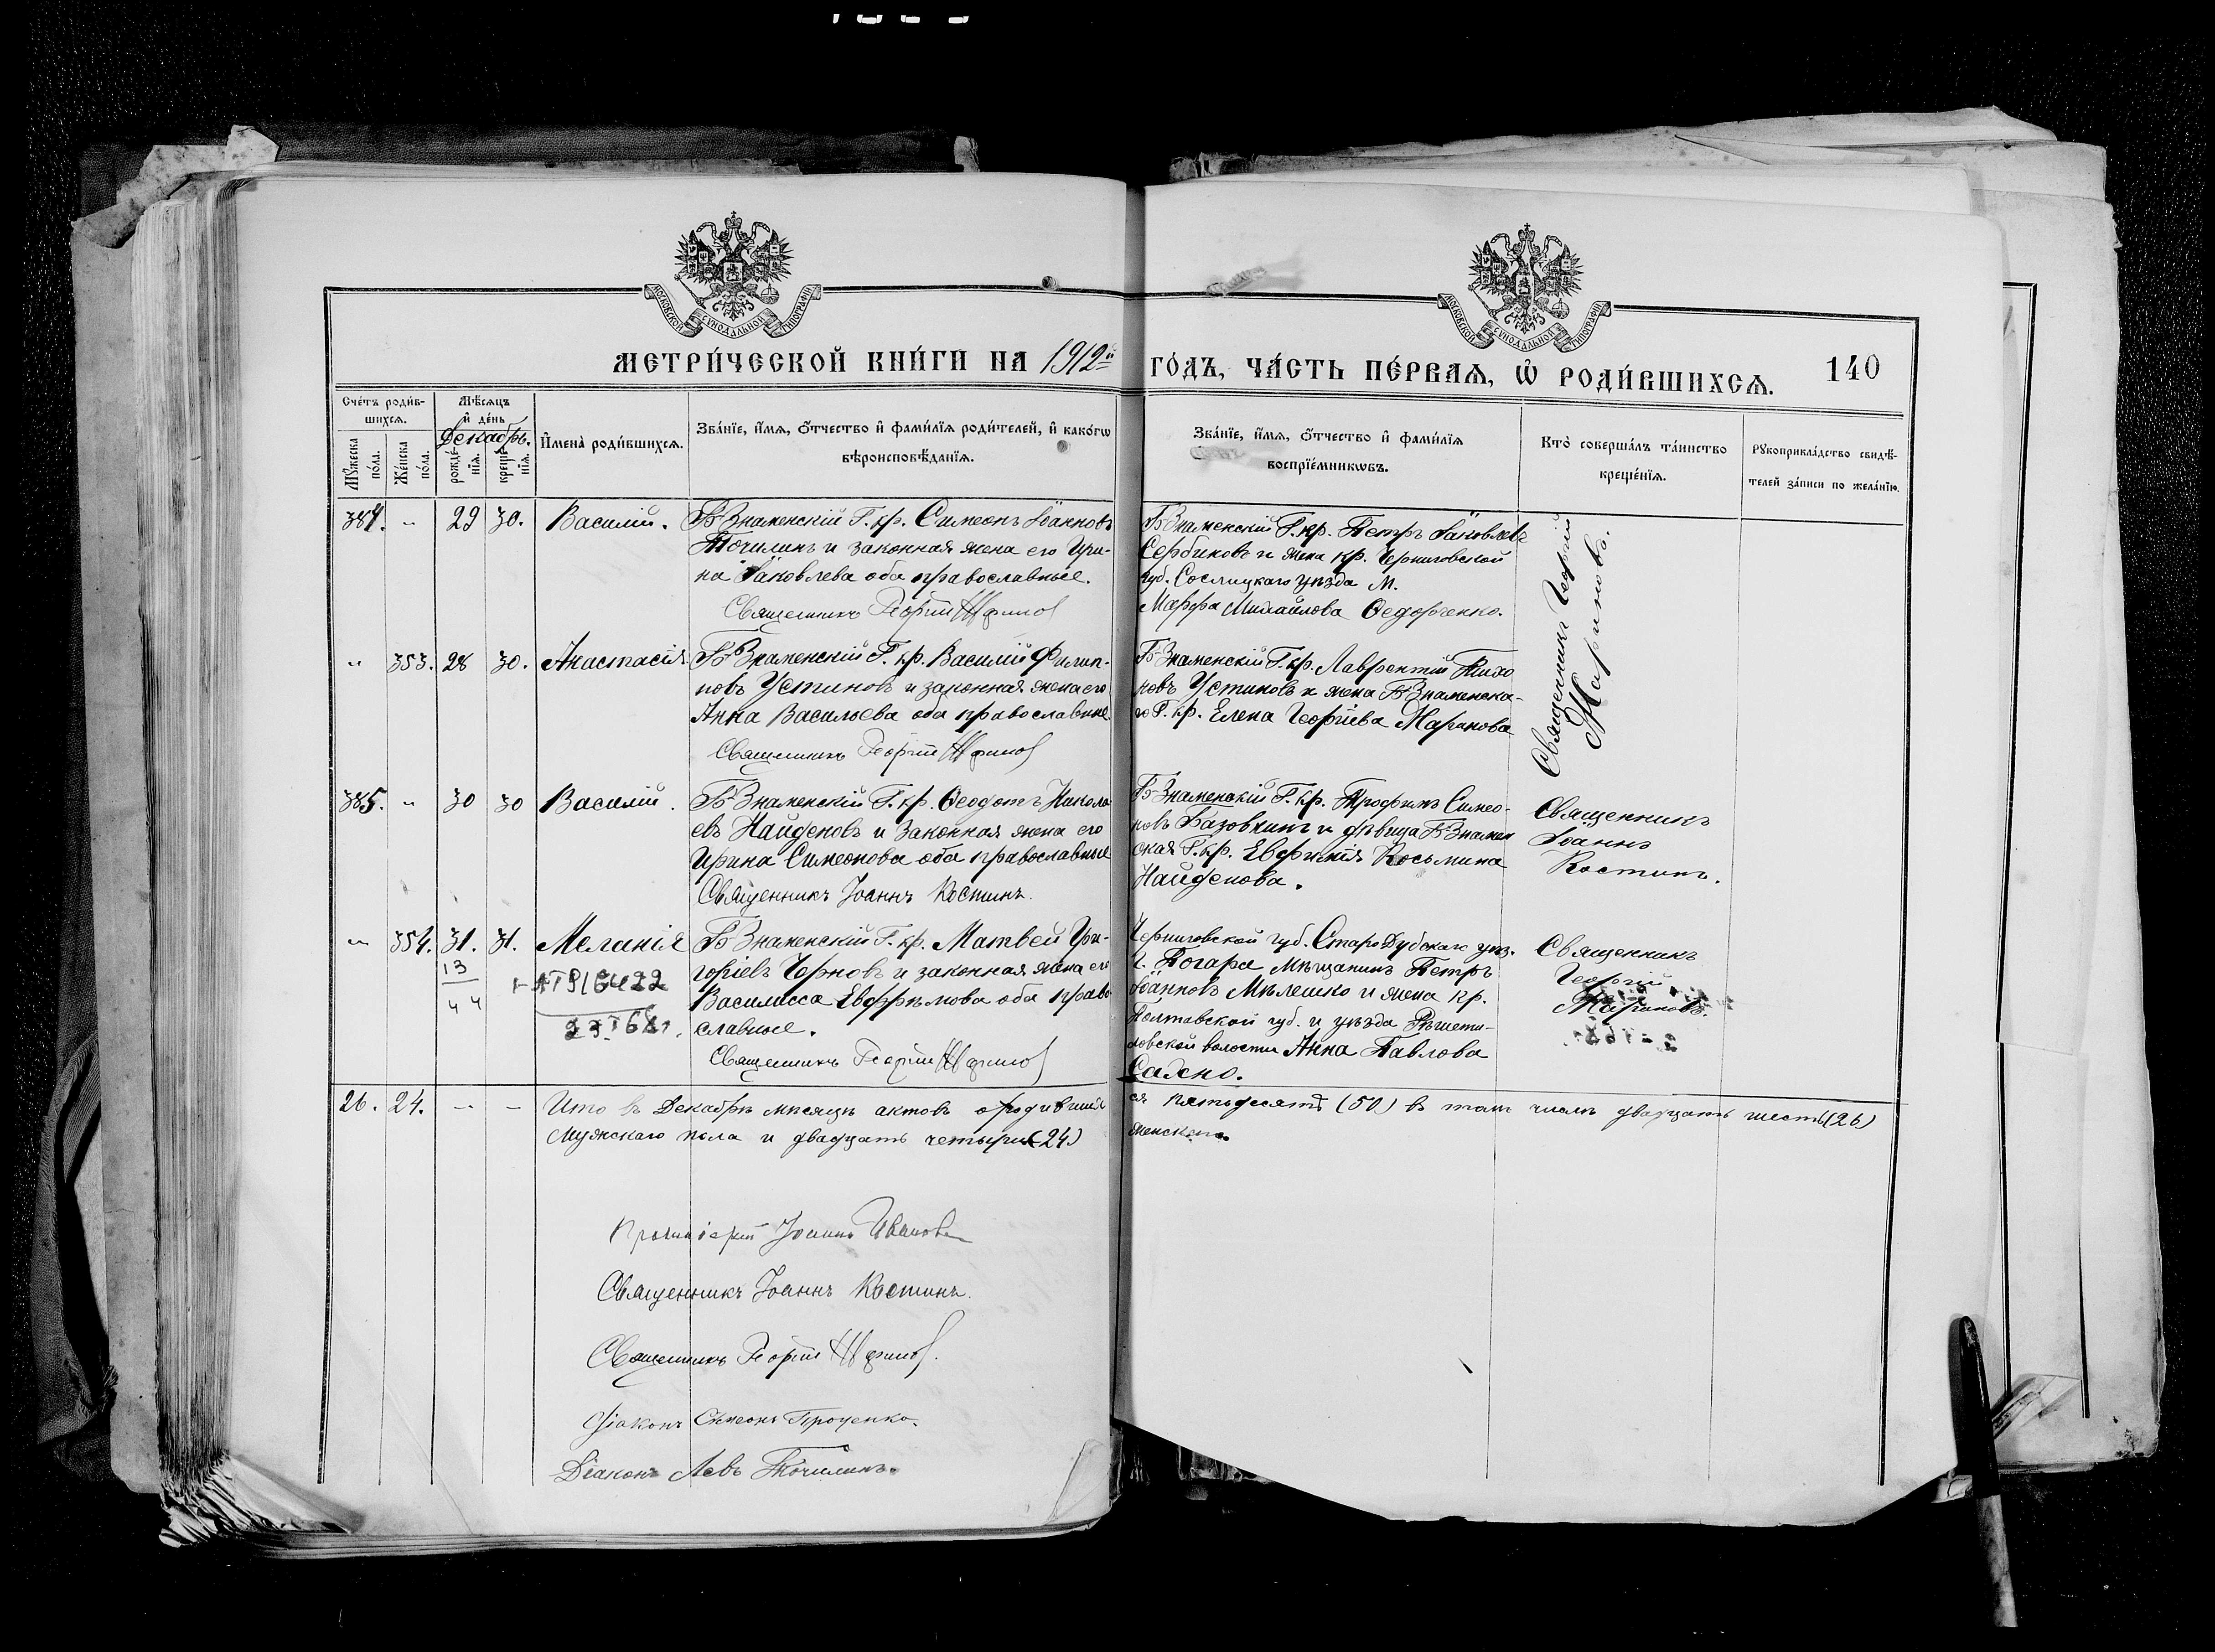 МОСКОВСКОЙ СѴНОДАЛЬНОЙ ТИПОГРАФІИ
МОСКОВСКОЙ СѴНОДАЛЬНОЙ ТИПОГРАФІИ
МЕТРИ́ЧЕСКОЙ КНИ́ГИ НА 1912й
ГО́ДЪ, ЧА́СТЬ ПЕ́РВАѦ, Ѡ҆ РОДИ́ВШИХСѦ.
140
Сче́тъ роди́в-
шихсѧ.
Мѣ́сѧцъ
и҆ де́нь
Декабрь.
Мꙋ́жеска по́ла.
Же́нска по́ла.
рожде́нїѧ.
креще́нїѧ.
И҆мена̀ роди́вшихсѧ.
Зва́нїе, и҆́мѧ, ѻ҆́тчество и҆ фами́лїѧ роди́телей, и҆ како́гѡ
вѣроисповѣ́данїѧ.
Зва́нїе, и҆́мѧ, ѻ҆́тчество и҆ фами́лїѧ
воспрїе́мникѡвъ.
Кто̀ соверша́лъ та́инство
креще́нїѧ.
Рꙋкоприкла́дство свидѣ́-
телей за́писи по жела́нїю.
384. „ 29 30. Василій.
Б Знаменскій Г. кр. Симеонъ Іоанновъ
Точилинъ и законная жена его Ири-
на Іаковлева оба православные.
Священникъ Георгій
Б Знаменскій Г. кр. Петръ Іаковлевъ
Сербиновъ и жена кр. Черниговской
губ. Сосницкаго уѣзда М.
Марфа Михайлова Ѳедорченко.
Священникъ Георгій
Мариновъ.
„ 353. 28 30. Анастасія
Б Знаменскій Г. кр. Василій Филип-
повъ Устиновъ и законная жена его
Анна Васильева оба православные
Священникъ Георгій
Б Знаменскій Г. кр. Лаврентій Тихо
новъ Устиновъ и жена Б Знаменска-
го Г. кр. Елена Георгіева Маринова
385. „ 30 30 Василій.
Б Знаменскій Г. кр. Ѳеодотъ Никола
евъ Найденовъ и законная жена его
Ирина Симеонова оба православные
Священникъ Іоаннъ Костинъ.
Б Знаменскій Г. кр. Трофимъ Симео-
новъ Базовкинъ и дѣвица Б Знамен
ская Г. кр. Евфимія Косьмина
Найденова.
Священникъ
Іоаннъ
Костинъ.
„ 354. 31. 31. Меланія
13
44
Б Знаменскій Г. кр. Матвей Гри-
горіевъ Черновъ и законная жена его
Василисса Евфимова оба право
славные.
Священникъ Георгій
Черниговской губ. Стародубскаго уѣз.
г. Погара мѣщанинъ Петръ
Іоанновъ Мѣлешко и жена кр.
Полтавской губ. и уѣзда Рѣшети-
ловской волости Анна Павлова
Священникъ
Георгій
Мариновъ.
26. 24. - - Что въ Декабрѣ мѣсяцѣ актовъ о родивших
ся пятьдесятъ (50) въ томъ числѣ двадцать шесть (26)
мужскаго пола и двадцать четыре (24)
женскаго.
Протоіерей Іоаннъ Ивановъ
Священникъ Іоаннъ Костинъ.
Священникъ Георгій
Діаконъ Симеонъ Проценко.
Діаконъ Левъ Точилинъ.